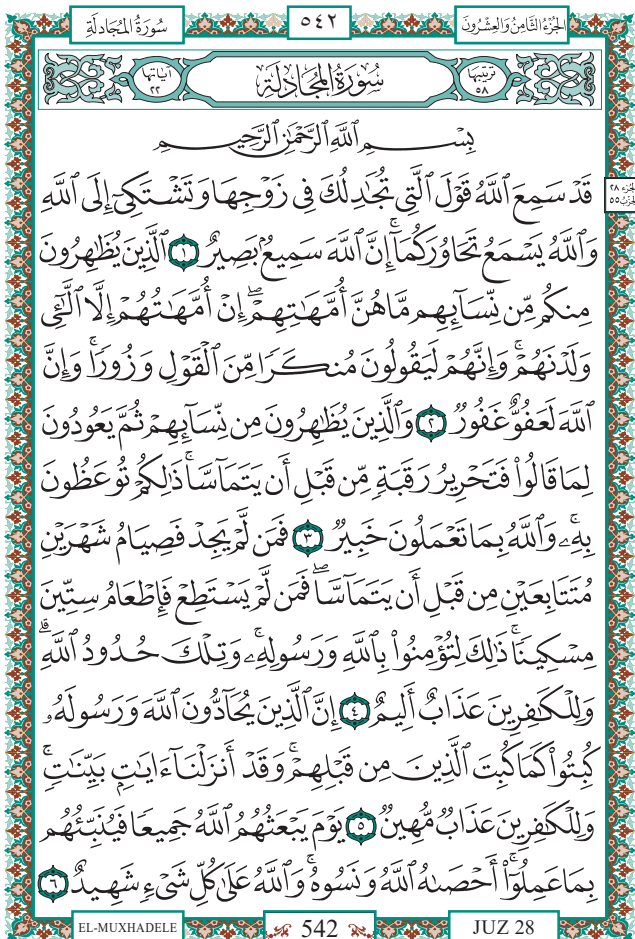 سُورَةُ المُجَادلَةِ
٥٤٢
الجُزْءُ الثَّامِنُ وَالعِشْرُونَ
تَرتيبُهَا ٥٨
سُورَةُ المُجَادلَةِ
آيَاتُهَا ٢٢
بِسْمِ ٱللَّهِ ٱلرَّحْمَٰنِ ٱلرَّحِيمِ
قَدْ سَمِعَ ٱللَّهُ قَوْلَ ٱلَّتِي تُجَٰدِلُكَ فِي زَوْجِهَا وَتَشْتَكِيٓ إِلَى ٱللَّهِ
الجزء ٢٨
الحزب ٥٥
وَٱللَّهُ يَسْمَعُ تَحَاوُرَكُمَآۚ إِنَّ ٱللَّهَ سَمِيعُۢ بَصِيرٌ ١ ٱلَّذِينَ يُظَٰهِرُونَ
مِنكُم مِّن نِّسَآئِهِم مَّا هُنَّ أُمَّهَٰتِهِمْۖ إِنْ أُمَّهَٰتُهُمْ إِلَّا ٱلَّٰٓـِٔي
وَلَدْنَهُمْۚ وَإِنَّهُمْ لَيَقُولُونَ مُنكَرًا مِّنَ ٱلْقَوْلِ وَزُورًاۚ وَإِنَّ
ٱللَّهَ لَعَفُوٌّ غَفُورٌ ٢ وَٱلَّذِينَ يُظَٰهِرُونَ مِن نِّسَآئِهِمْ ثُمَّ يَعُودُونَ
لِمَا قَالُواْ فَتَحْرِيرُ رَقَبَةٍ مِّن قَبْلِ أَن يَتَمَآسَّاۚ ذَٰلِكُمْ تُوعَظُونَ
بِهِۦۚ وَٱللَّهُ بِمَا تَعْمَلُونَ خَبِيرٌ ٣ فَمَن لَّمْ يَجِدْ فَصِيَامُ شَهْرَيْنِ
مُتَتَابِعَيْنِ مِن قَبْلِ أَن يَتَمَآسَّاۖ فَمَن لَّمْ يَسْتَطِعْ فَإِطْعَامُ سِتِّينَ
مِسْكِينًاۚ ذَٰلِكَ لِتُؤْمِنُواْ بِٱللَّهِ وَرَسُولِهِۦۚ وَتِلْكَ حُدُودُ ٱللَّهِۗ
وَلِلْكَٰفِرِينَ عَذَابٌ أَلِيمٌ ٤ إِنَّ ٱلَّذِينَ يُحَآدُّونَ ٱللَّهَ وَرَسُولَهُۥ
كُبِتُواْ كَمَا كُبِتَ ٱلَّذِينَ مِن قَبْلِهِمْۚ وَقَدْ أَنزَلْنَآ ءَايَٰتِۭ بَيِّنَٰتٍۚ
وَلِلْكَٰفِرِينَ عَذَابٌ مُّهِينٌ ٥ يَوْمَ يَبْعَثُهُمُ ٱللَّهُ جَمِيعًا فَيُنَبِّئُهُم
بِمَا عَمِلُوٓاْۚ أَحْصَىٰهُ ٱللَّهُ وَنَسُوهُۚ وَٱللَّهُ عَلَىٰ كُلِّ شَيْءٍ شَهِيدٌ ٦
EL-MUXHADELE
542
JUZ 28